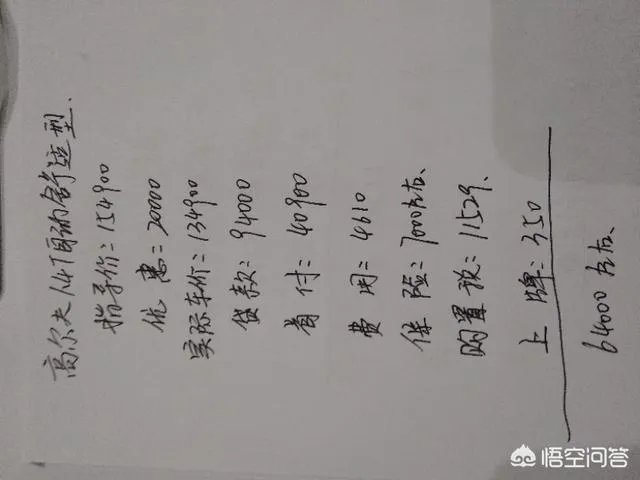 高尔夫1.4T自动舒适型、
指导价=154900
优惠=20000
实际车价=134900
贷款=94000
首付=40900
费用=4610
保险=7000左右、
购置税=11529、
上牌=350
64000左右、
悟空问答